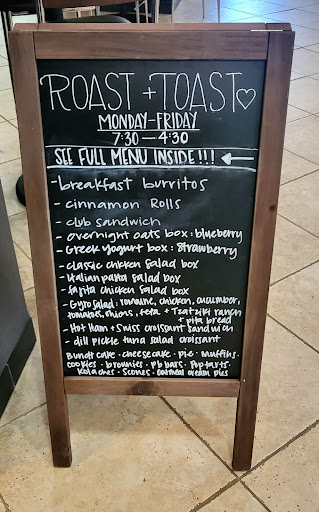 ROAST + TOAST♡
MONDAY-FRIDAY
7:30 — 4:30
SEE FULL MENU INSIDE!!! ←
- breakfast burritos
- cinnamon Rolls
- club sandwich
- overnight oats box: blueberry
- Greek yogurt box: Strawberry
- classic chicken Salad box
- Italian pasta Salad box
- fajita chicken Salad box
- Gyro Salad: romaine, chicken, cucumber,
tomatoes, onions, feta + Tzatziki ranch
+ pita bread
- Hot Ham + Swiss croissant sandwich
- dill pickle tuna salad croissant
Bundt cake · cheesecake · pie · muffins ·
cookies · brownies · pb bars · Poptarts ·
kolaches · Scones · oatmeal cream pies